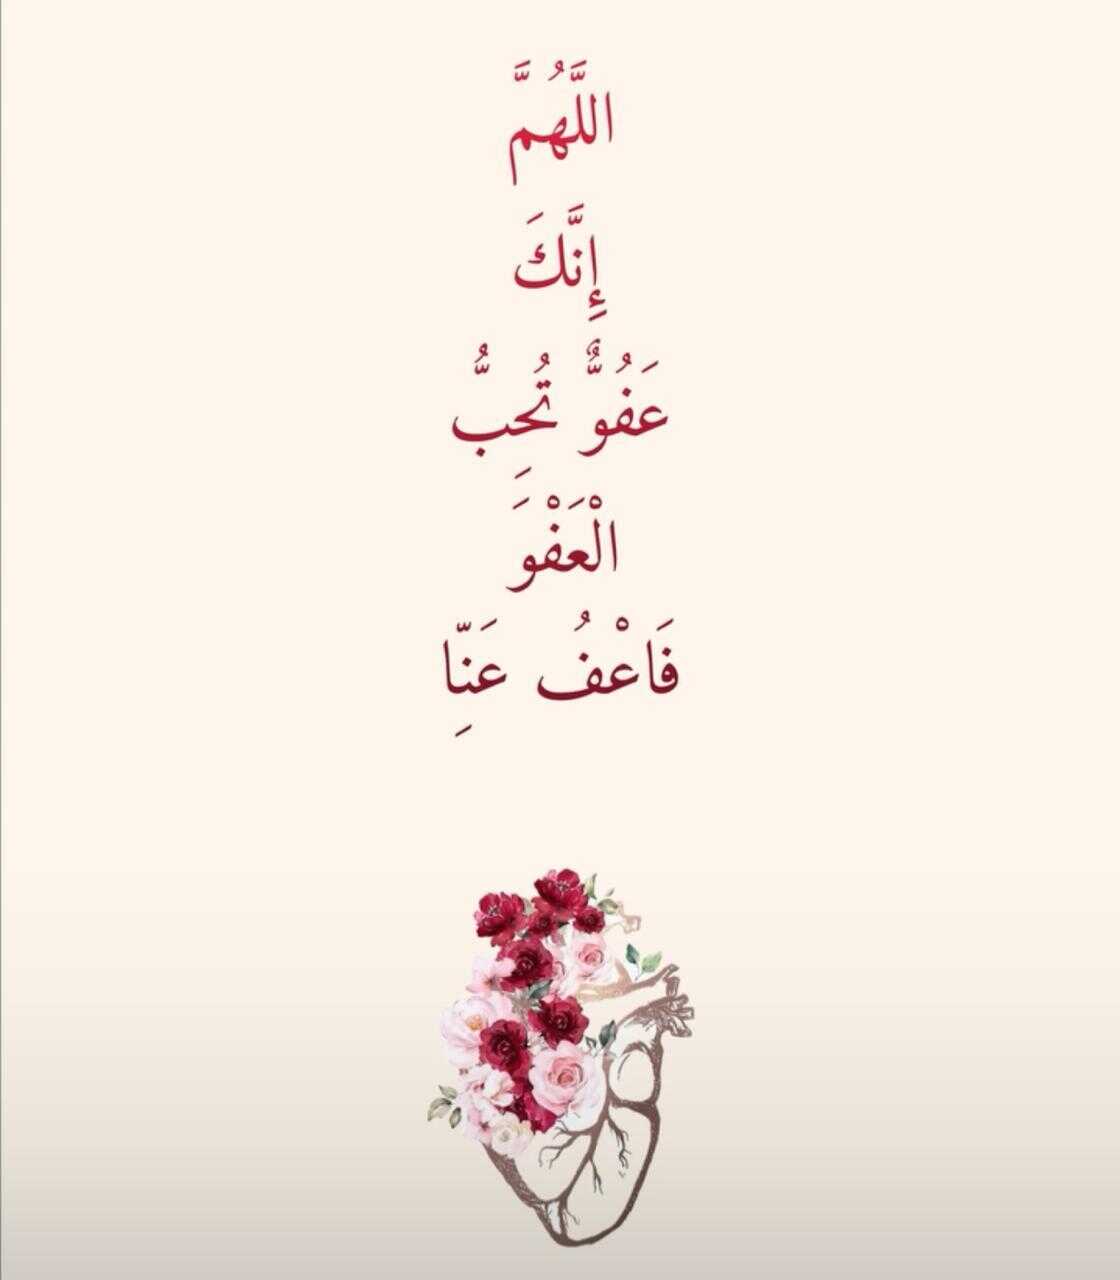 اللَّهُمَّ
إِنَّكَ
عَفُوٌّ تُحِبُّ
الْعَفْوَ
فَاعْفُ عَنِّاَِ